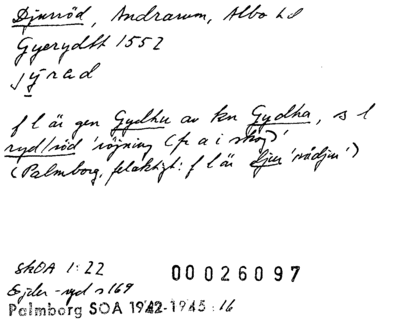 Djurröd, Andrarum, Albo hd
Gyerydtt 1552
jýrad
f l är gen Gydhu av kn Gydha, s l
ryd/röd 'röjning (fr a i skog)'
(Palmborg, felaktigt: f l är djur 'rådjur')
SkOA 1:22
00026097
Gjder-ryd s 169
Palmborg SOA 1942-1945 :16